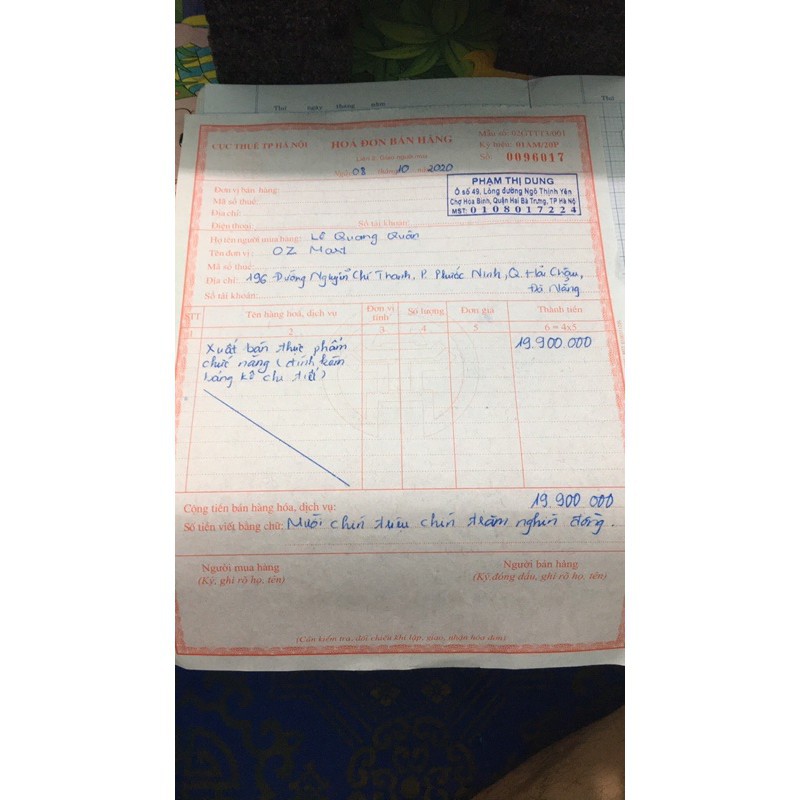 Thứ ngày tháng năm
CỤC THUẾ TP HÀ NỘI
HOÁ ĐƠN BÁN HÀNG
Mẫu số: 02GTTT3/001
Ký hiệu: 01AM/20P
Số: 0096017
Liên 2: Giao người mua
Ngày 08 tháng 10 năm 2020
PHẠM THỊ DUNG
Ô số 49, Lòng đường Ngô Thịnh Yên
Chợ Hòa Bình, Quận Hai Bà Trưng, TP Hà Nội
MST: 0108017224
Đơn vị bán hàng:
Mã số thuế:
Địa chỉ:
Điện thoại: Số tài khoản:
Họ tên người mua hàng: Lê Quang Quân
Tên đơn vị: OZ Mart
Mã số thuế:
Địa chỉ: 196 Đường Nguyễn Chí Thanh, P. Phước Ninh, Q. Hải Châu,
Đà Nẵng
Số tài khoản:
STT Tên hàng hoá, dịch vụ Đơn vị tính Số lượng Đơn giá Thành tiền
1 2 3 4 5 6 = 4x5
Xuất bán thực phẩm 19.900.000
chức năng (đính kèm
bảng kê chi tiết)
Cộng tiền bán hàng hóa, dịch vụ: 19.900 000
Số tiền viết bằng chữ: Mười chín triệu chín trăm nghìn đồng.
Người mua hàng Người bán hàng
(Ký, ghi rõ họ, tên) (Ký đóng dấu, ghi rõ họ, tên)
(Cần kiểm tra, đối chiếu khi lập, giao, nhận hóa đơn)